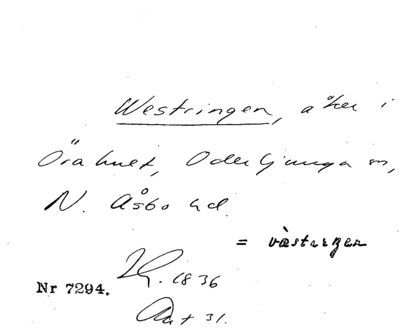 Westringen, åker i
Örahult, Oderljunga sn,
N. Åsbo hd.
= västargen
Nr 7294.
1836
Akt 31.